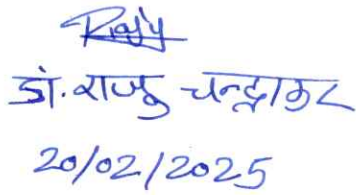 डॉ. राजू चन्द्राकर
20/02/2025